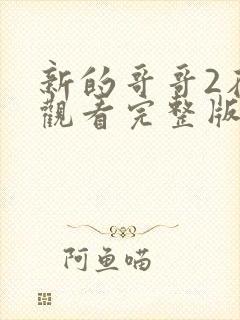 新的哥哥2
觀看完整版
阿鱼喵